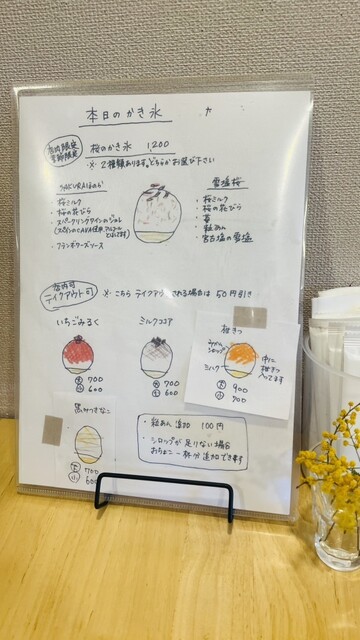 本日のかき氷
店内限定
季節限定
桜のかき氷 1,200
※ 2種類あります。どちらかお選び下さい
SAKURAほのか
・桜ミルク
・桜の花びら
・スパークリングワインのジュレ
・フランボワーズソース
雪塩桜
・桜ミルク
・桜の花びら
・苺
・粒あん
・宮古塩の雪塩
店内可
テイクアウト可
※ こちら テイクアウトされる場合は 50円引き
いちごみるく
大 700
小 600
ミルクココア
大 700
小 600
柑きつ
みかん
シロップ
ミルク
中に
柑きつ
入ってます
大 900
小 700
黒みつきなこ
大 700
小 600
・粒あん 追加 100円
・シロップが 足りない 場合
おちょこ一杯分 追加できます